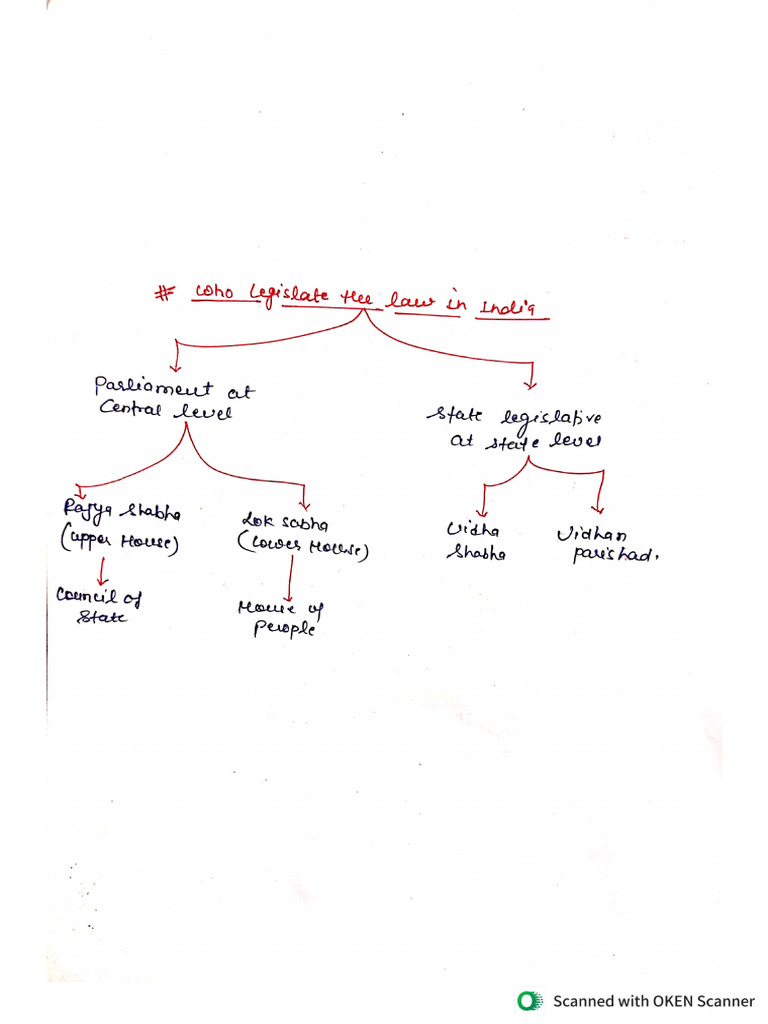 # Who Legislate the law in India
Parliament at
Central level
State legislative
at state level
Rajya Shabha
(Upper House)
Lok sabha
(Lower House)
Vidha
Shabha
Vidhan
parishad.
Council of
State
House of
People
Scanned with OKEN Scanner